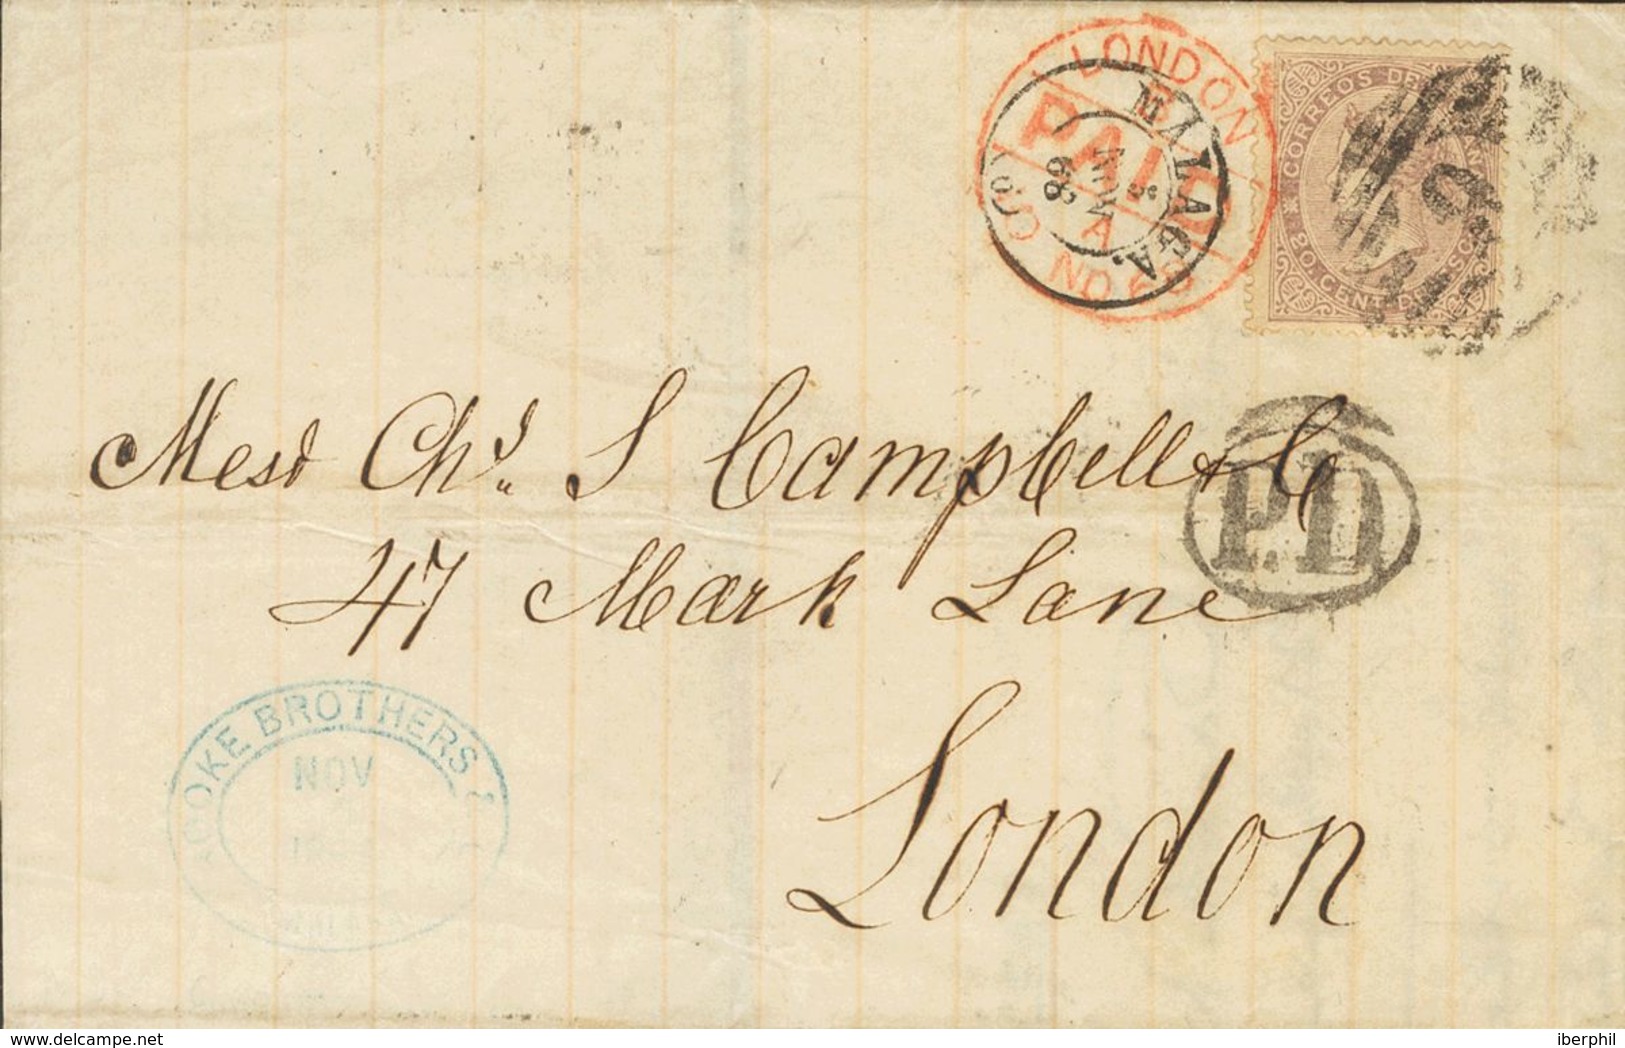 LONDON
PAID
A
NO 68
MALAGA.
5
NOV
68
CORREOS DE
P.D
Mesr Chs. S Campbell & Co
47 Mark Lane
London
COOKE BROTHERS &
NOV
delcampe.net
iberphil